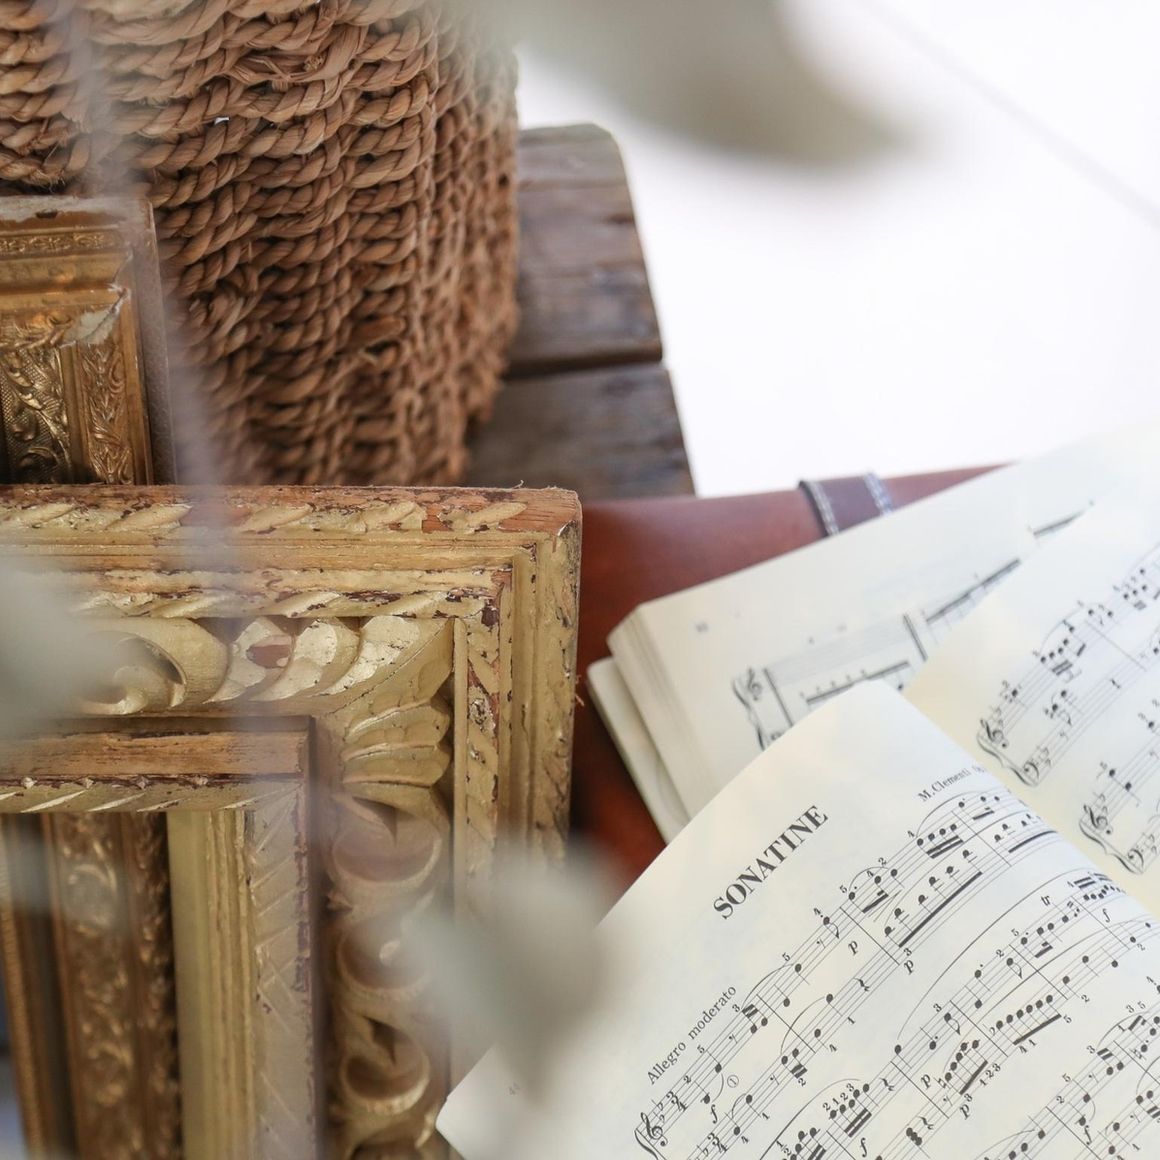 M.Clementi
SONATINE
Allegro moderato